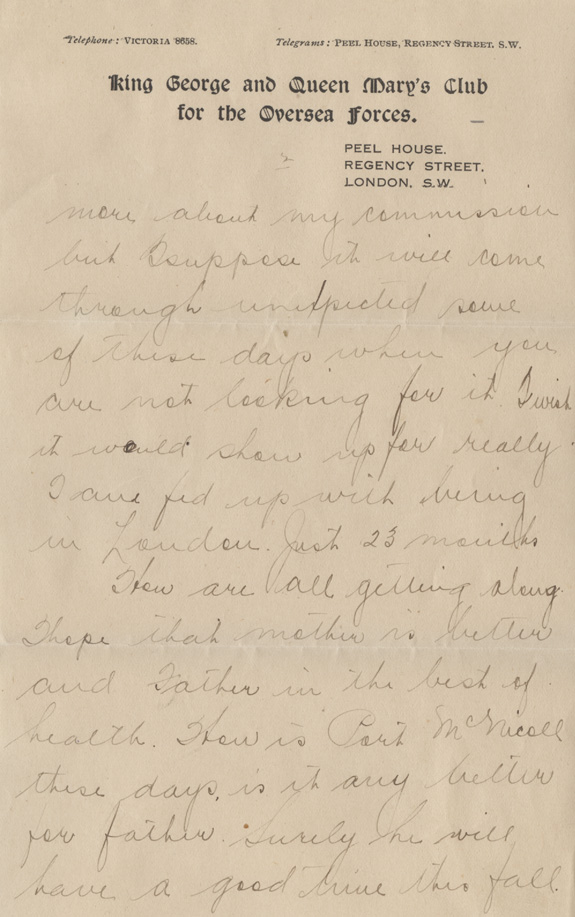 Telephone: VICTORIA 8658. Telegrams: PEEL HOUSE, REGENCY STREET. S.W.
King George and Queen Mary's Club
for the Oversea Forces.
PEEL HOUSE.
REGENCY STREET.
LONDON, S.W.
2
more about my commission
but I suppose it will come
through unexpected some
of these days when you
are not looking for it. I wish
it would show up for really
I am fed up with being
in London. Just 23 months
How are all getting along.
I hope that mother is better
and Father in the best of
health. How is Port McNicoll
these days, is it any better
for father. Surely he will
have a good time this fall.